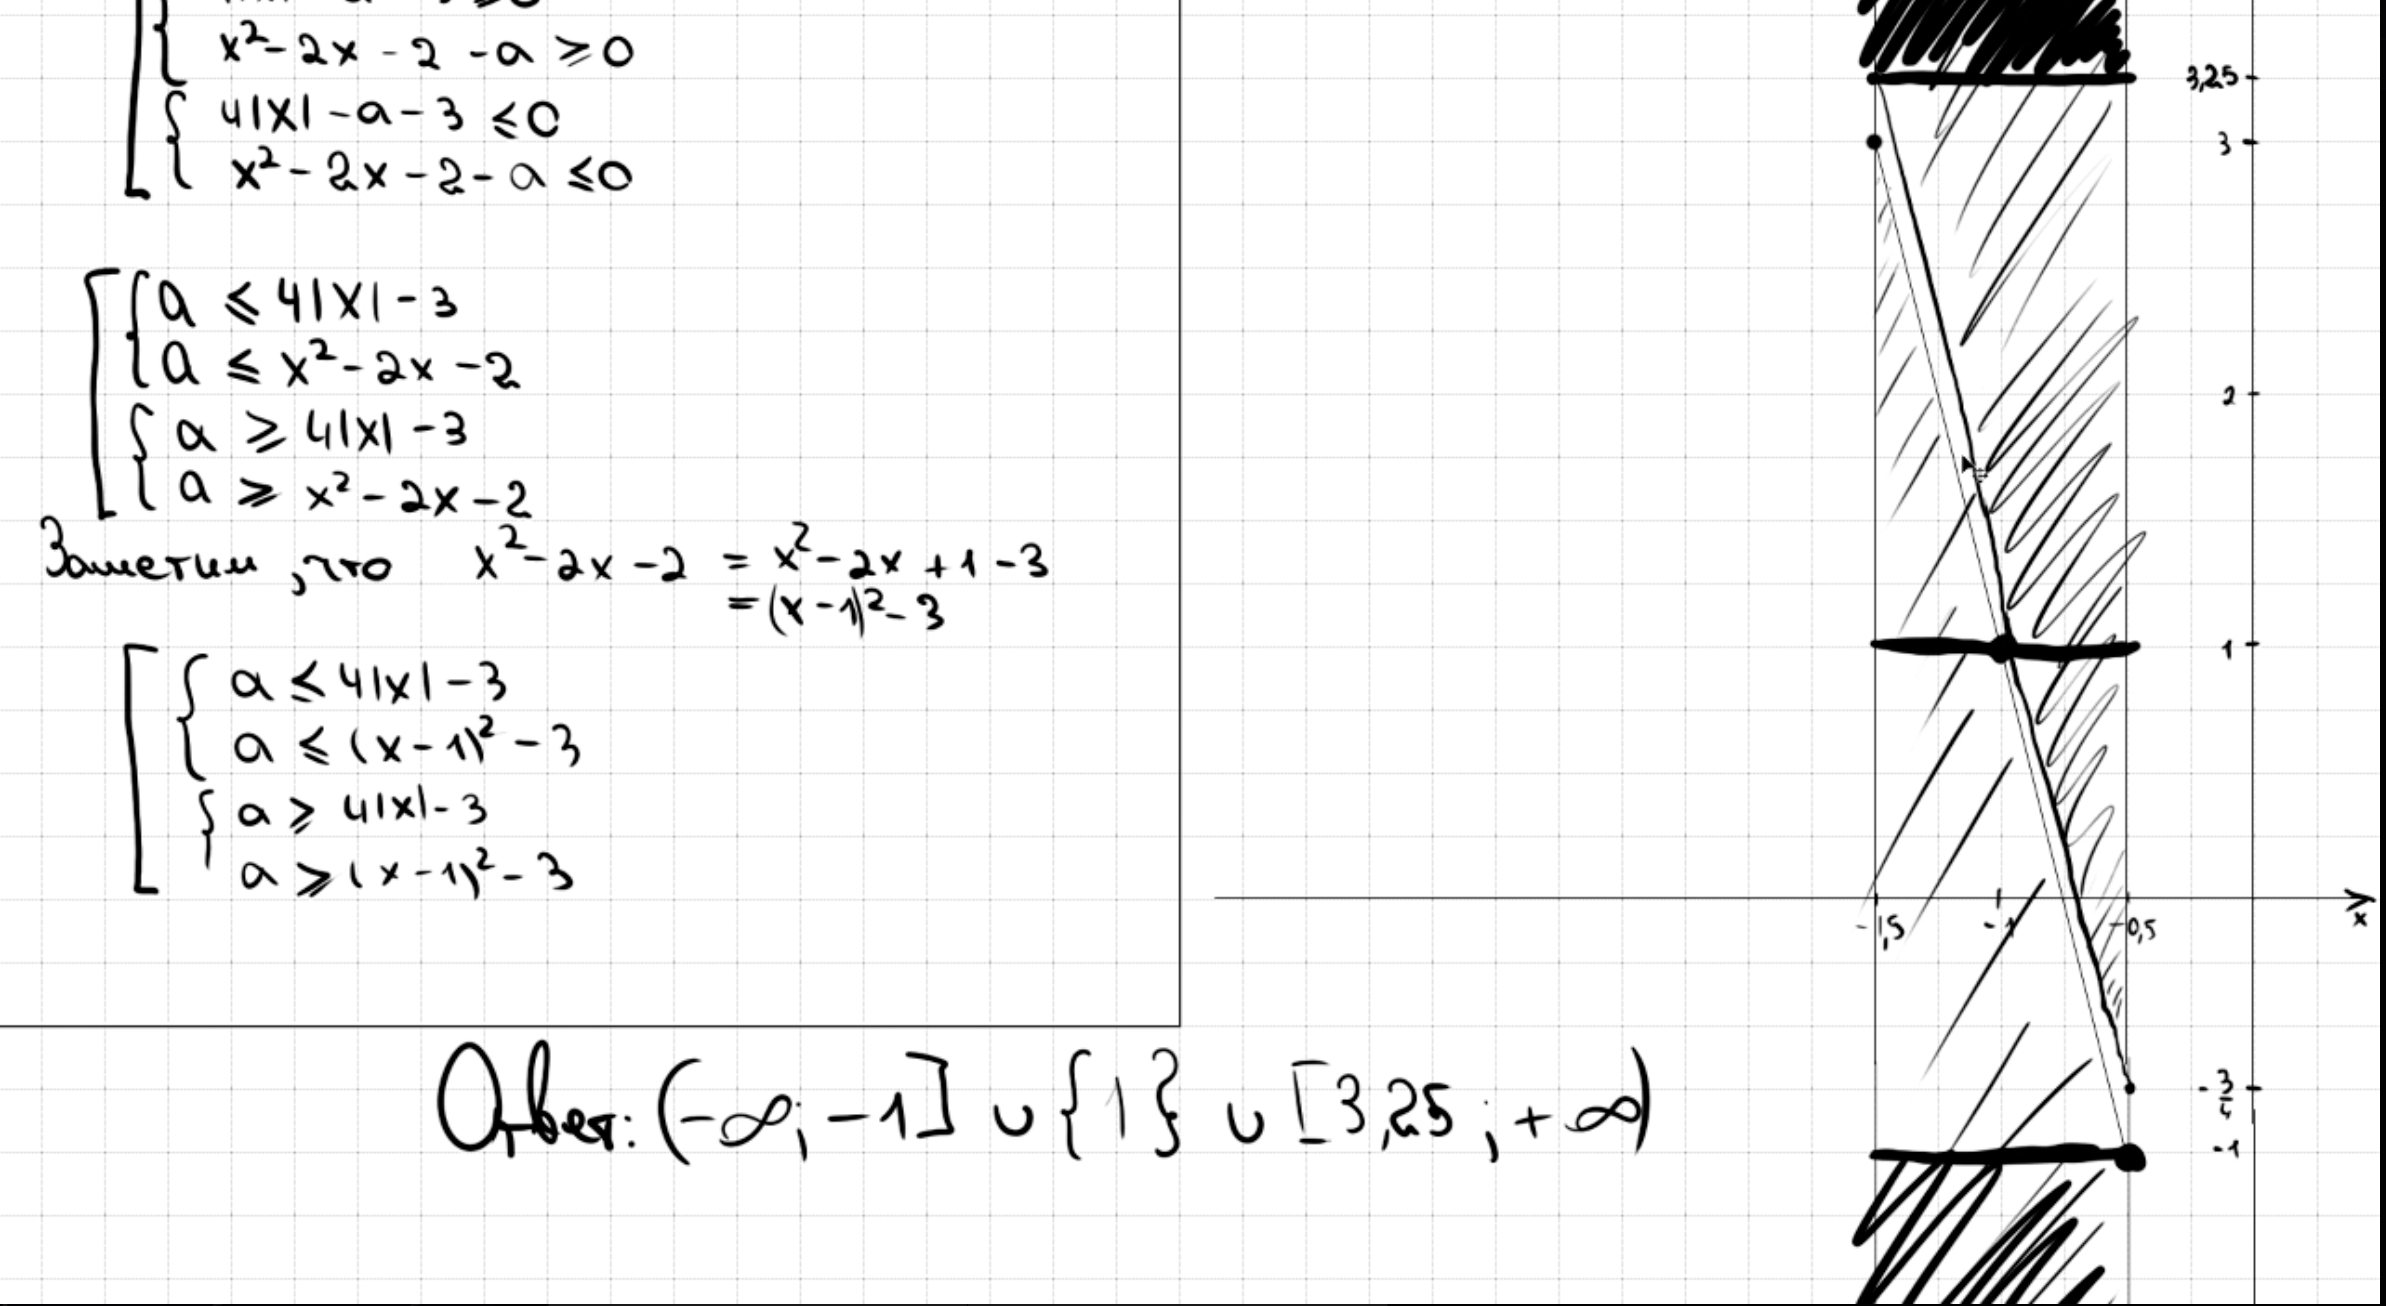 x²-2x-2-a ⩾ 0
4|x|-a-3 ⩽ 0
x²-2x-2-a ⩽ 0
a ⩽ 4|x|-3
a ⩽ x²-2x-2
a ⩾ 4|x|-3
a ⩾ x²-2x-2
Заметим, что x²-2x-2 = x²-2x+1-3
=(x-1)²-3
a ⩽ 4|x|-3
a ⩽ (x-1)²-3
a ⩾ 4|x|-3
a ⩾ (x-1)²-3
Ответ: (-∞; -1] ∪ {1} ∪ [3,25; +∞)
3,25
3
2
1
-1,5 -1 -0,5 x
-3/4
-1